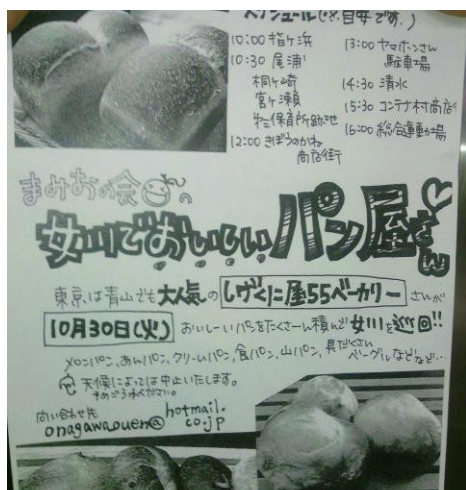 スケジュール(※目安です。)
10:00 指ヶ浜
10:30 尾浦
桐ヶ崎
宮ヶ瀬
第三保育所跡地
12:00 きぼうのかね
商店街
13:00 ヤマホンさん
駐車場
14:30 清水
15:30 コンテナ村商店
16:00 総合運動場
まみおの会の
女川でおいしいパン屋さん
東京は青山でも大人気のしげくに屋55ベーカリーさんが
10月30日(火)おいしーいパンをたくさん積んで女川を巡回!!
メロンパン、あんパン、クリームパン、食パン、山パン、具だくさん
ベーグルなどなど…
天候によっては中止いたします。
問い合わせ先
onagawaouen@hotmail.
co.jp